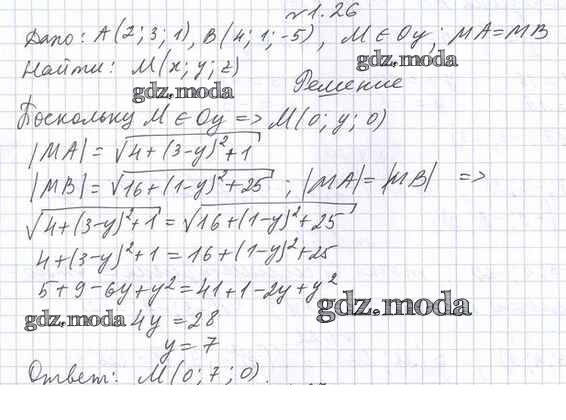 №1.26
Дано: A(2; 3; 1), B(4; 1; -5), M ∈ Oy; MA = MB
Найти: M(x; y; z)
gdz.moda
Решение
Поскольку M ∈ Oy => M(0; y; 0)
|MA| = √4+(3-y)²+1
|MB| = √16+(1-y)²+25 ; |MA| = |MB| =>
√4+(3-y)²+1 = √16+(1-y)²+25
4+(3-y)²+1 = 16+(1-y)²+25
5+9-6y+y² = 41+1-2y+y²
gdz.moda
gdz.moda 4y = 28
y = 7
Ответ: M(0; 7; 0).